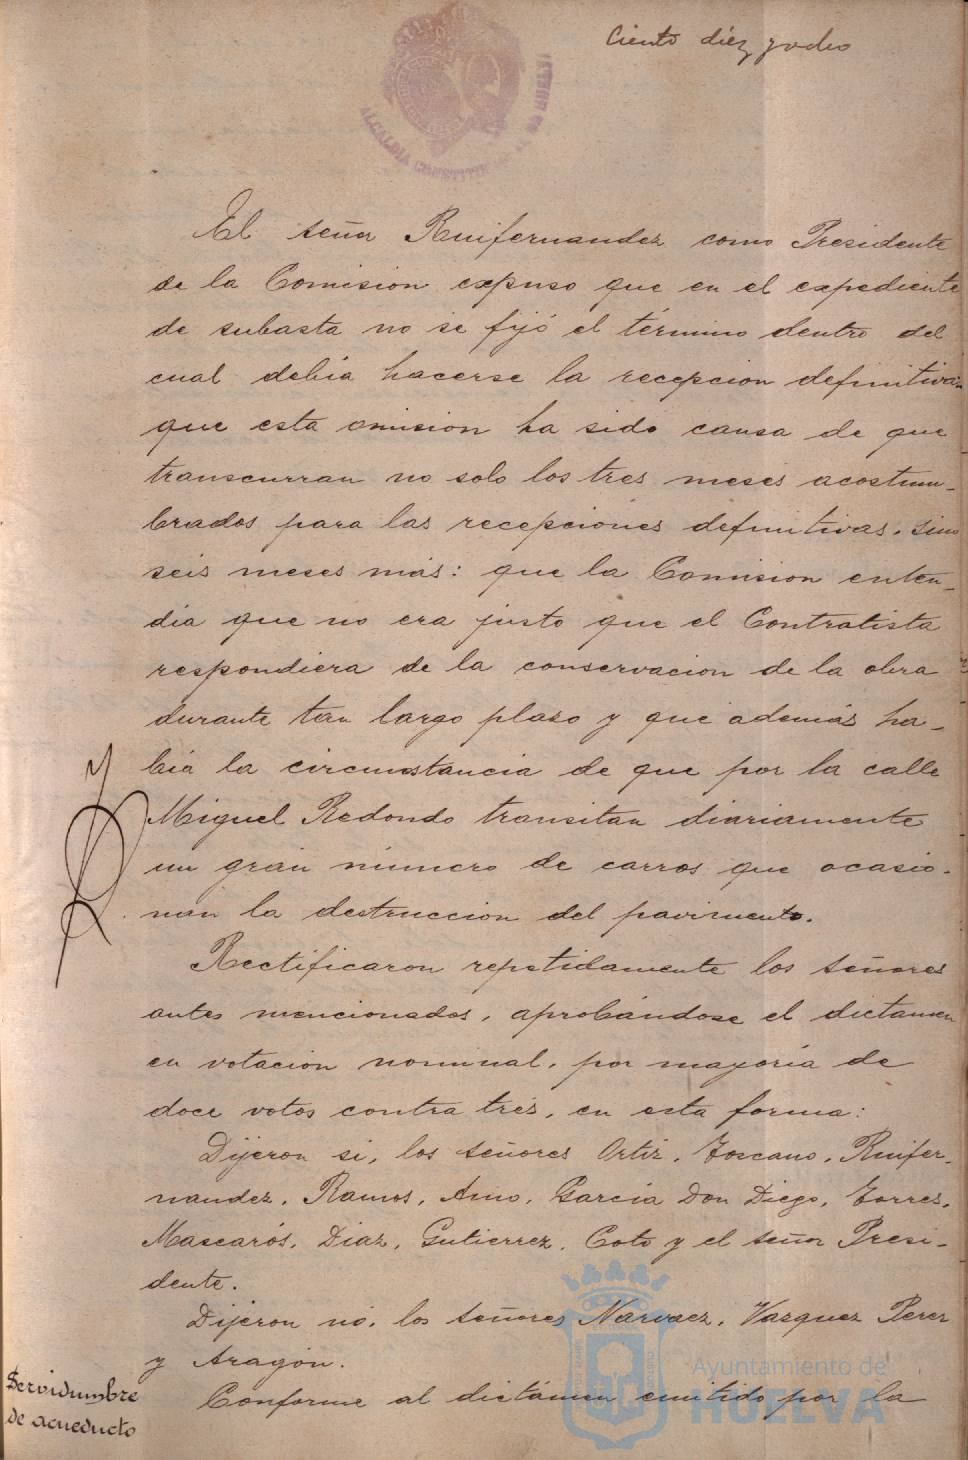 Ciento diez y ocho
ALCALDIA CONSTITUCIONAL DE HUELVA
El señor Ruifernandez como Presidente
de la Comision expuso que en el expediente
de subasta no se fijó el término dentro del
cual debia hacerse la recepcion definitiva:
que esta omision ha sido causa de que
transcurran no solo los tres meses acostum-
brados para las recepciones definitivas, sino
seis meses más: que la Comision enten-
dia que no era justo que el Contratista
respondiera de la conservacion de la obra
durante tan largo plazo y que además ha-
bia la circunstancia de que por la calle
Miguel Redondo transitan diariamente
un gran número de carros que ocasio-
nan la destruccion del pavimento.
Rectificaron repetidamente los señores
antes mencionados, aprobándose el dictamen
en votacion nominal, por mayoria de
doce votos contra tres, en esta forma:
Dijeron si, los señores Ortiz, Toscano, Ruifer-
nandez, Ramos, Amo, Garcia Don Diego, Torres,
Mascarós, Diaz, Gutierrez, Coto y el señor Presi-
dente.
Dijeron nó, los señores Narvaez, Vazquez Perez
y Aragón.
Servidumbre
de acueducto
Conforme al dictámen emitido por la
Ayuntamiento de
HUELVA